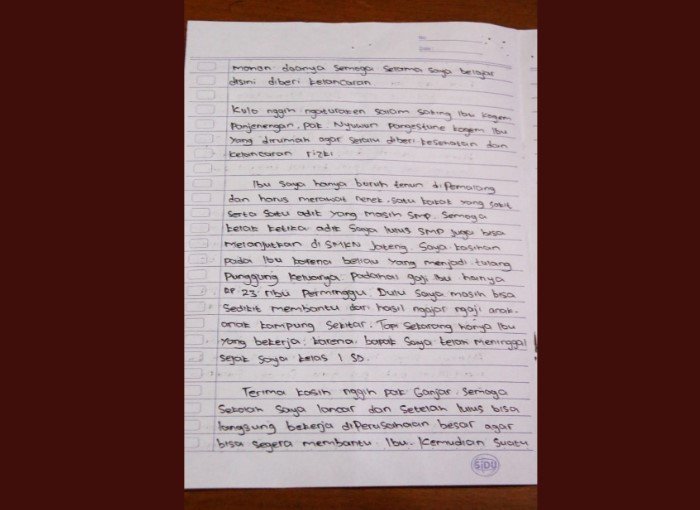 No.
Date.
mohon doanya semoga selama saya belajar
disini diberi kelancaran.
Kulo nggih ngaturaken salam saking Ibu kagem
Panjenengan, pak Nyuwun Pangestune kagem Ibu
yang dirumah agar selalu diberi kesehatan dan
kelancaran rizki
Ibu saya hanya buruh tenun di Pemalang
dan harus merawat nenek, satu kakak yang sakit
serta satu adik yang masih SMP. Semoga
kelak ketika adik saya lulus SMP juga bisa
melanjutkan di SMKN Jateng. Saya kasihan
pada Ibu karena beliau yang menjadi tulang
punggung keluarga. Padahal gaji Ibu hainya
RP 23 ribu Perminggu. Dulu saya masih bisa
sedikit membantu dari hasil ngajar ngaji anak-
anak kampung sekitar. Tapi sekarang hanya Ibu
yang bekerja. karena bapak saya telah meninggal
sejak saya kelas 1 SD.
Terima kasih nggih pak Ganjar. Semoga
Sekolah saya lancar dan setelah lulus bisa
langsung bekerja diPerusahaan besar agar
bisa segera membantu Ibu. Kemudian suatu
SiDU